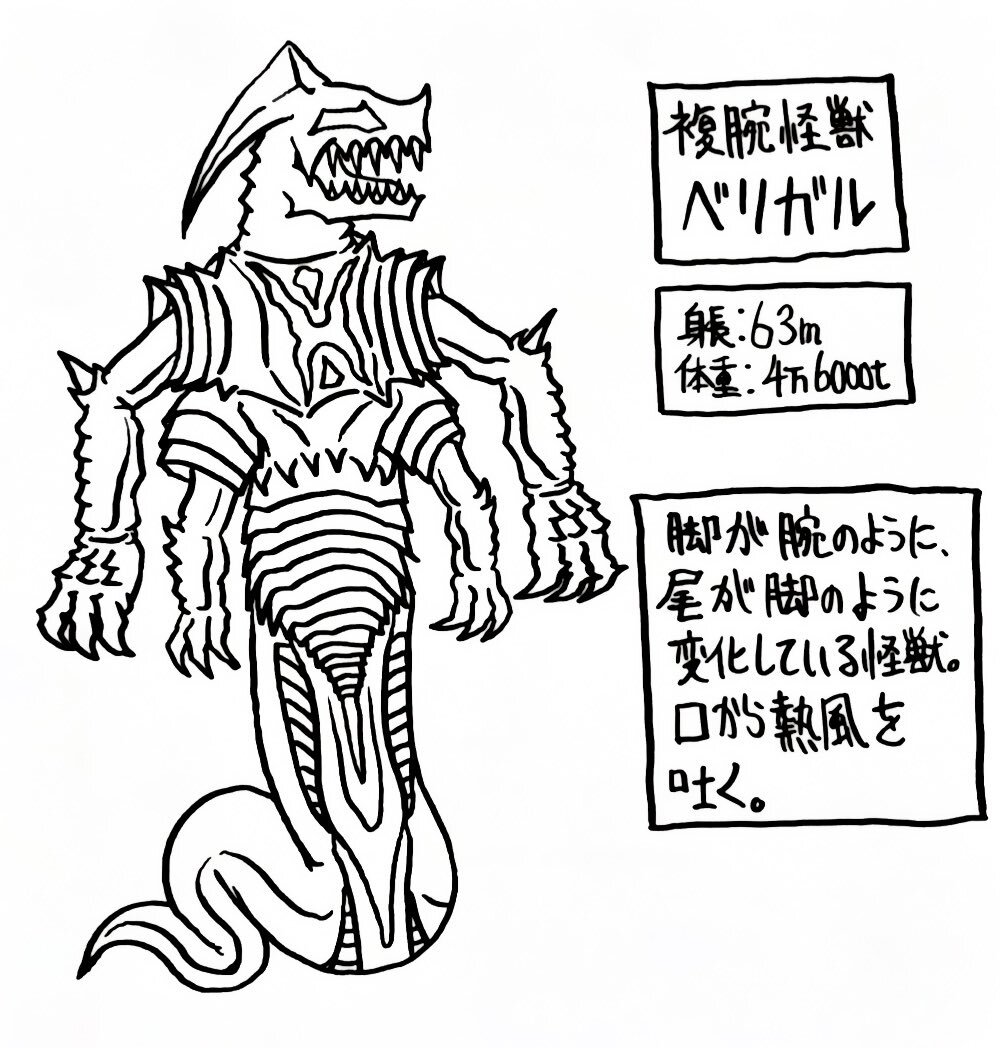 複腕怪獣
ベリガル
身長:63m
体重:4万6000t
脚が腕のように、
尾が脚のように
変化している怪獣。
口から熱風を
吐く。